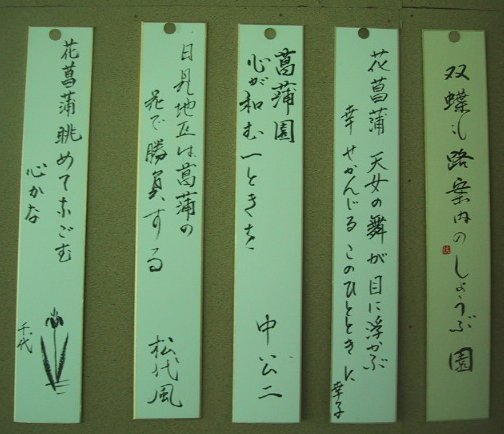 双蝶も路案内のしょうぶ園
花菖蒲 天女の舞が目に浮かぶ
幸せかんじるこのひとときに
幸子
菖蒲園
心が和む一ときを
中 公二
日見地区は菖蒲の
花で勝負する
松代風
花菖蒲眺めてなごむ
心かな
千代